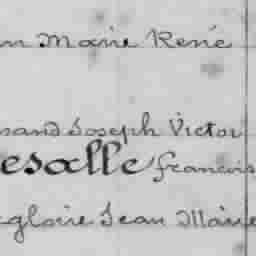 n Marie René
sand Joseph Victor
esalle francois
gloire Jean Marie